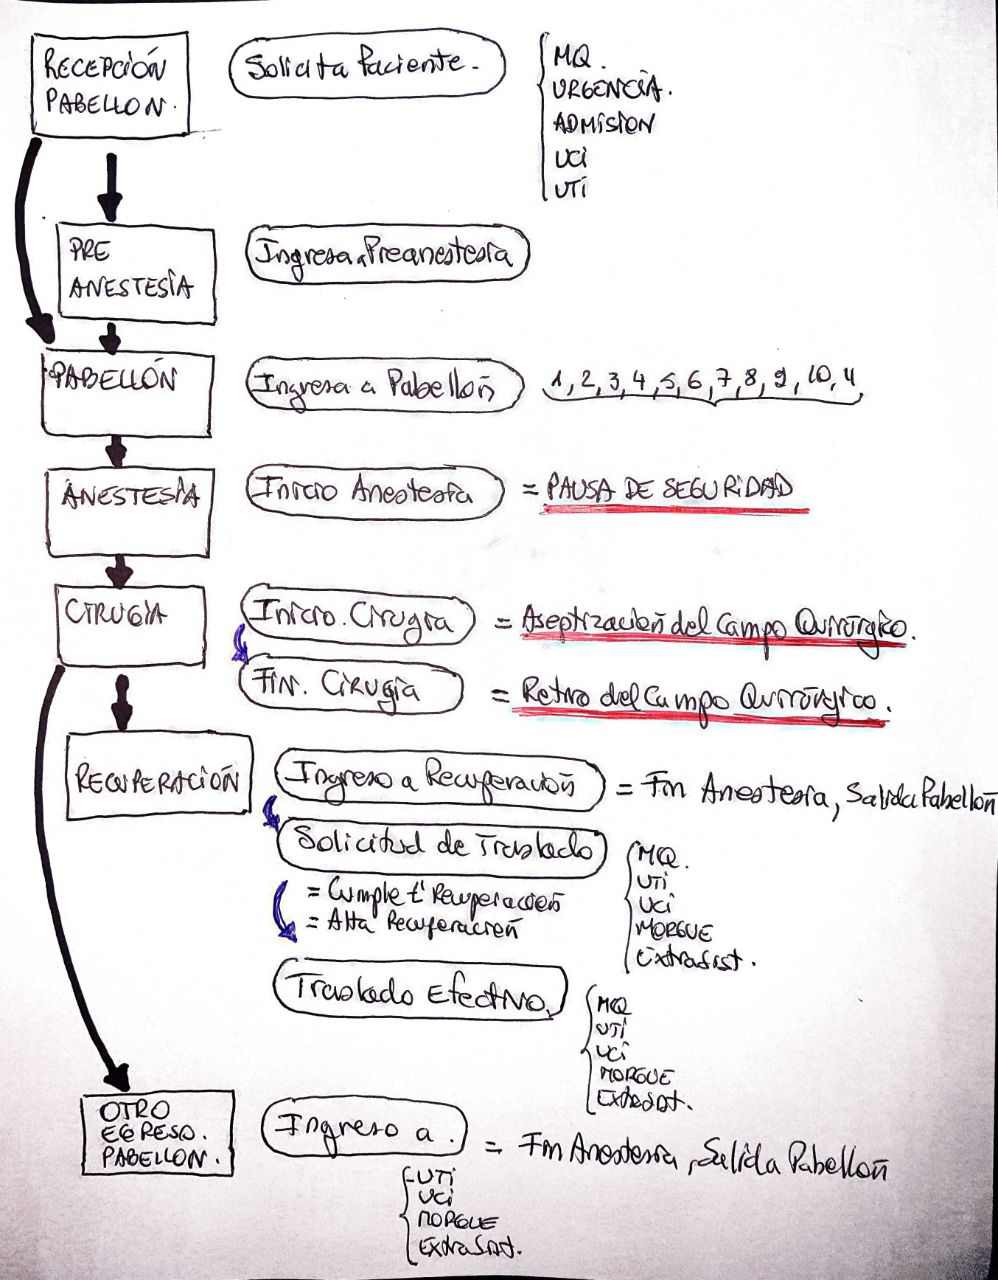 RECEPCIÓN
PABELLON.
Solicita Paciente.
MQ.
URGENCIA.
ADMISION
UCI
UTI
PRE
ANESTESÍA
Ingresa a Preanestesía
PABELLÓN
Ingresa a Pabellón
1, 2, 3, 4, 5, 6, 7, 8, 9, 10, 11
ANESTESÍA
Inicio Anestesia
= PAUSA DE SEGURIDAD
CIRUGÍA
Inicio. Cirugía
= Aseptización del Campo Quirúrgico.
Fin. Cirugía
= Retiro del Campo Quirúrgico.
RECUPERACIÓN
Ingreso a Recuperación
= Fin Anestesia, Salida Pabellón
Solicitud de Traslado
MQ.
UTI
UCI
MORGUE
ExtraSist.
= Cumple tº Recuperación
= Alta Recuperación
Traslado Efectivo.
MQ
UTI
UCI
MORGUE
ExtraSist.
OTRO
EGRESO.
PABELLON.
Ingreso a.
= Fin Anestesia, Salida Pabellón
UTI
UCI
MORGUE
ExtraSist.